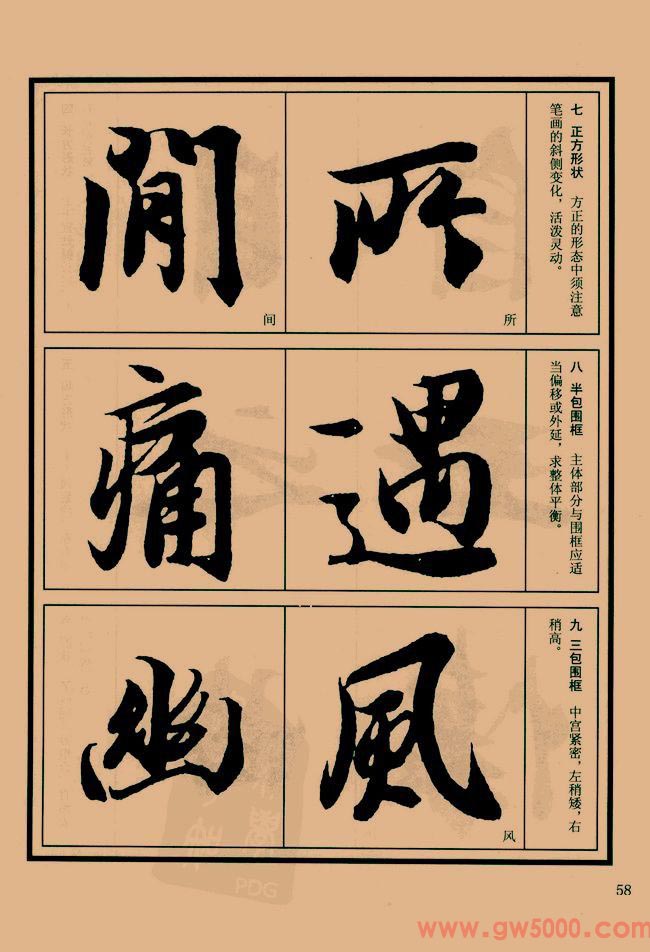 七 正方形状 方正的形态中须注意
笔画的斜侧变化，活泼灵动。
所
所
間
间
八 半包围框 主体部分与围框应适
当偏移或外延，求整体平衡。
遇
痛
九 三包围框 中宫紧密，左稍矮，右
稍高。
風
风
幽
PDG
58
www.gw5000.com